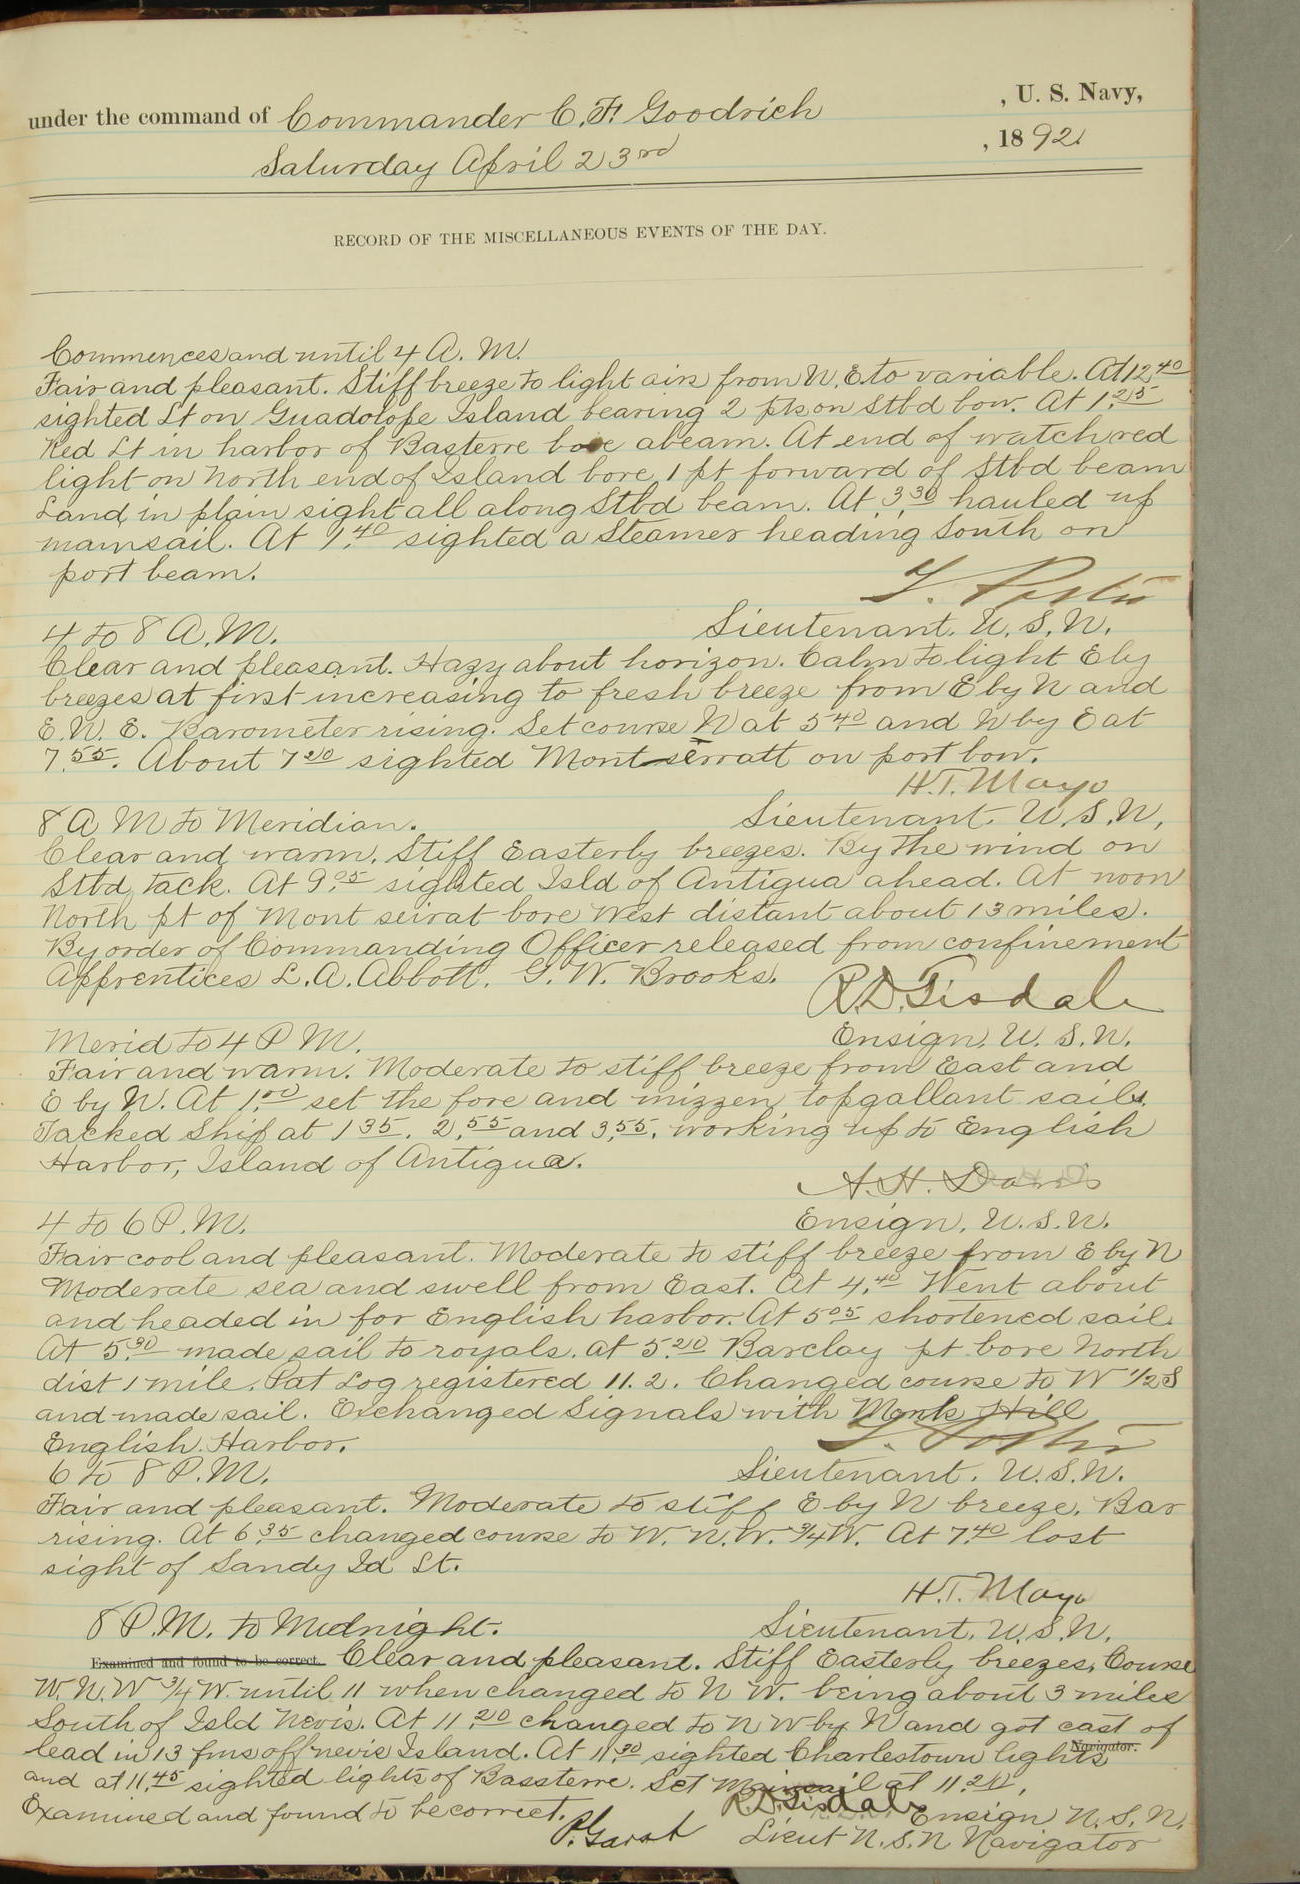 under the command of Commander C. F. Goodrich , U. S. Navy,
Saturday April 23rd , 1892.
RECORD OF THE MISCELLANEOUS EVENTS OF THE DAY.
Commences and until 4 A. M.
Fair and pleasant. Stiff breeze to light airs from N. E. to variable. At 12.40
sighted Lt on Guadolope Island bearing 2 pts on Stbd bow. At 1.25
Red Lt in harbor of Basterre bore abeam. At end of watch red
light on North end of Island bore 1 pt forward of Stbd beam
Land in plain sight all along Stbd beam. At 3.30 hauled up
mainsail. At 1.40 sighted a Steamer heading South on
port beam.
Lieutenant. U. S. N.
4 to 8 A. M.
Clear and pleasant. Hazy about horizon. Calm to light Ely
breezes at first increasing to fresh breeze from E by N and
E. N. E. Barometer rising. Set course N at 5 40 and N by E at
7.55. About 7 20 sighted Mont serratt on port bow.
H. T. Mayo
Lieutenant. U. S. N.
8 A M to Meridian.
Clear and warm. Stiff Easterly breezes. By the wind on
Stbd tack. At 9.05 sighted Isld of Antigua ahead. At noon
North pt of Mont seirat bore West distant about 13 miles.
By order of Commanding Officer released from confinement
Apprentices L. A. Abbott. G. W. Brooks.
R. D. Tisdale
Ensign, U. S. N.
Merid to 4 P M.
Fair and warm. Moderate to stiff breeze from East and
E by N. At 1.00 set the fore and mizzen topgallant sails.
Tacked Ship at 1 35, 2.55 and 3.55, working up to English
Harbor, Island of Antigua.
A. H. Davis
Ensign, U. S. N.
4 to 6 P. M.
Fair cool and pleasant. Moderate to stiff breeze from E by N
Moderate sea and swell from East. At 4.40 Went about
and headed in for English harbor. At 5 05 shortened sail.
At 5.30 made sail to royals. at 5.20 Barclay pt bore North
dist 1 mile. Pat Log registered 11.2. Changed course to W 1/2 S
and made sail. Exchanged Signals with Monk Hill
English Harbor.
Lieutenant. U. S. N.
6 to 8 P. M.
Fair and pleasant. Moderate to stiff E by N breeze. Bar
rising. At 6.35 changed course to W. N. W. 3/4 W. At 7.40 lost
sight of Sandy Id Lt.
H. T. Mayo
Lieutenant. U. S. N.
8 P. M. to Midnight.
Examined and found to be correct. Clear and pleasant. Stiff Easterly breezes. Course
W. N. W 3/4 W. until 11 when changed to N W. being about 3 miles
South of Isld Nevis. At 11.20 changed to N W by N and got cast of
lead in 13 fms off nevis Island. At 11.30 sighted Charlestown lights
Navigator.
and at 11.45 sighted lights of Bassterre. Set Mainsail at 11.20.
R. D. Tisdale Ensign U. S. N.
Examined and found to be correct.
P. Garst Lieut U. S. N Navigator